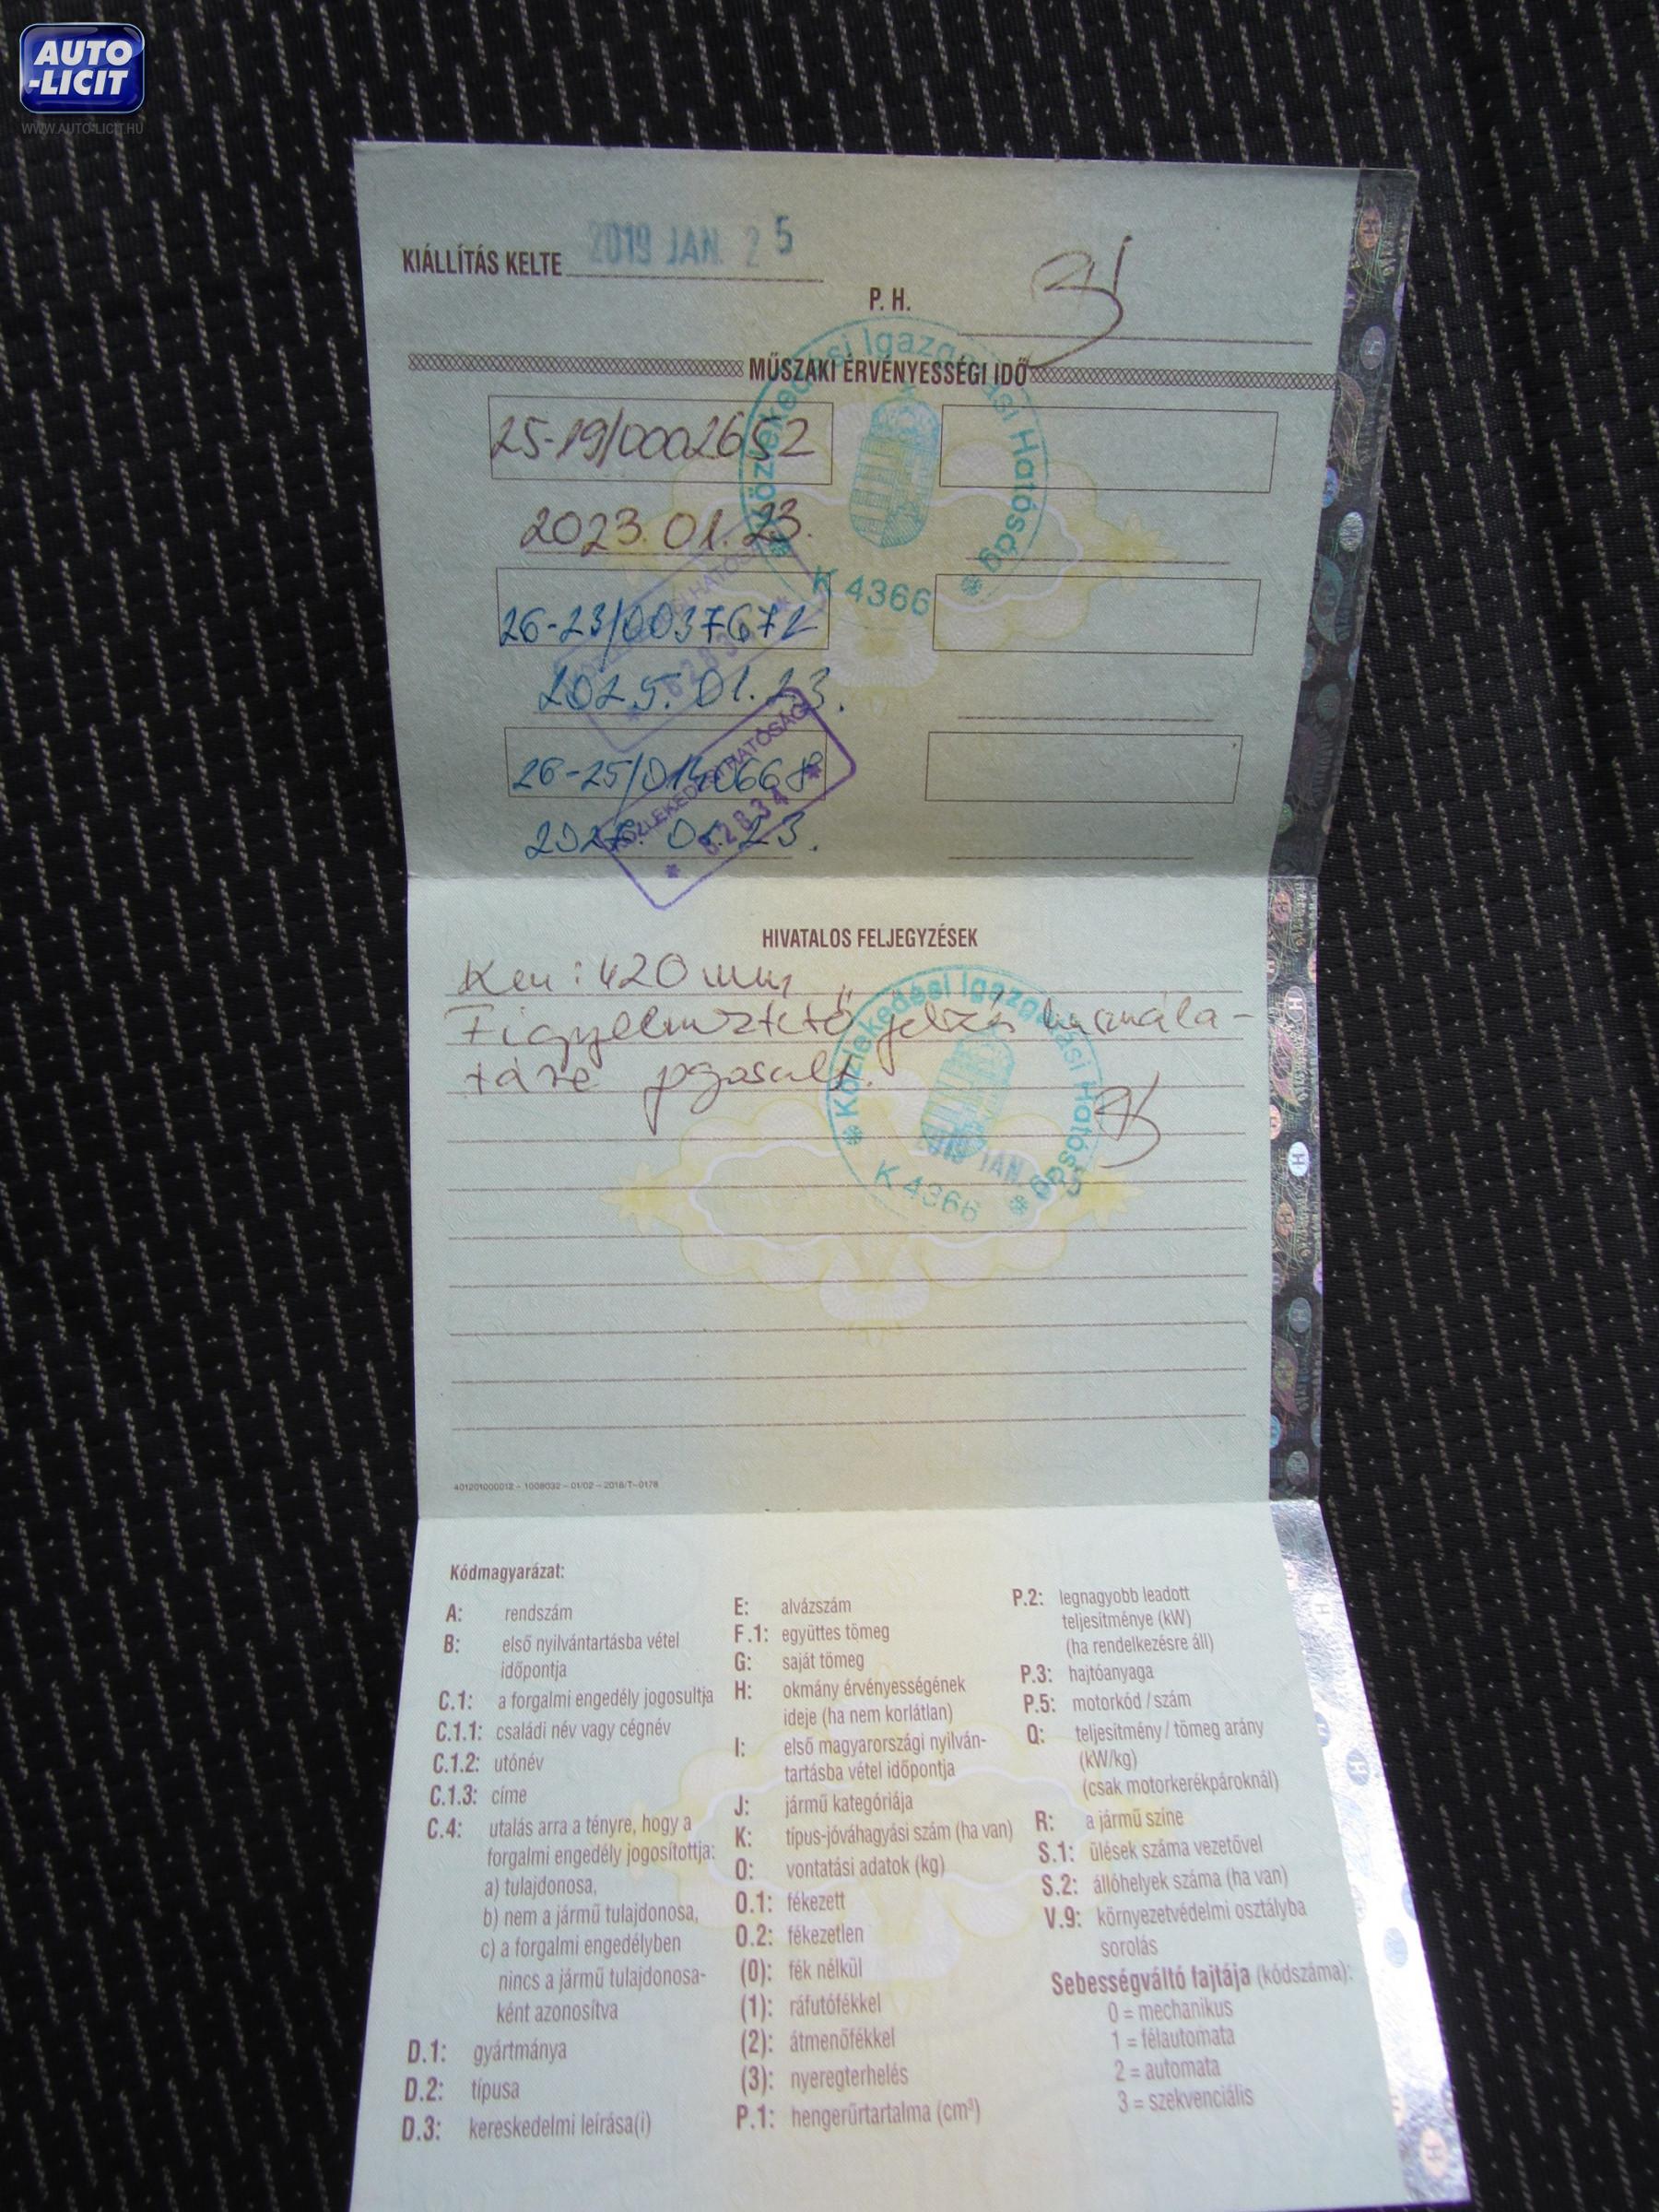 AUTO
-LICIT
WWW.AUTO-LICIT.HU
KIÁLLÍTÁS KELTE 2019 JAN. 25
P. H.
MŰSZAKI ÉRVÉNYESSÉGI IDŐ
25-19/0002652
2023. 01. 23.
Közlekedési Igazgatási Hatóság
K 4366
26-23/0037672
2025. 01. 23.
26-25/0140668
01. 23.
KÖZLEKEDÉSI HATÓSÁG
62834
HIVATALOS FELJEGYZÉSEK
Ken: 420 mm,
Figyelmeztető jelzés használa-
tára jogosult.
Közlekedési Igazgatási Hatóság
2019 JAN. 25
K 4366
401201000012 – 1008032 – 01/02 – 2018/T–0178
Kódmagyarázat:
A: rendszám
B: első nyilvántartásba vétel
időpontja
C.1: a forgalmi engedély jogosultja
C.1.1: családi név vagy cégnév
C.1.2: utónév
C.1.3: címe
C.4: utalás arra a tényre, hogy a
forgalmi engedély jogosítottja:
a) tulajdonosa,
b) nem a jármű tulajdonosa,
c) a forgalmi engedélyben
nincs a jármű tulajdonosa-
ként azonosítva
D.1: gyártmánya
D.2: típusa
D.3: kereskedelmi leírása(i)
E: alvázszám
F.1: együttes tömeg
G: saját tömeg
H: okmány érvényességének
ideje (ha nem korlátlan)
I: első magyarországi nyilván-
tartásba vétel időpontja
J: jármű kategóriája
K: típus-jóváhagyási szám (ha van)
O: vontatási adatok (kg)
O.1: fékezett
O.2: fékezetlen
(0): fék nélkül
(1): ráfutófékkel
(2): átmenőfékkel
(3): nyeregterhelés
P.1: hengerűrtartalma (cm³)
P.2: legnagyobb leadott
teljesítménye (kW)
(ha rendelkezésre áll)
P.3: hajtóanyaga
P.5: motorkód / szám
Q: teljesítmény / tömeg arány
(kW/kg)
(csak motorkerékpároknál)
R: a jármű színe
S.1: ülések száma vezetővel
S.2: állóhelyek száma (ha van)
V.9: környezetvédelmi osztályba
sorolás
Sebességváltó fajtája (kódszáma):
0 = mechanikus
1 = félautomata
2 = automata
3 = szekvenciális